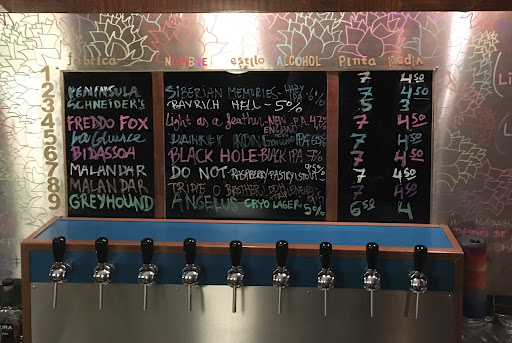 fabrica NOMBRE estilo ALCOHOL Pinta media
1 PENINSULA SIBERIAN MEMORIES - HAZY IPA 6% 7 4.50
2 SCHNEIDER'S BAYRICH HELL - 5% 5 3
3 FREDDO FOX Light as a feather - NEW ENGLAND IPA 4'7% 7 4.50
4 La Quince DANKEY KONG IPA 6% 7 4.50
5 BIDASSOA BLACK HOLE - BLACK IPA - 7% 7 4.50
6 MALANDAR DO NOT - RASPBERRY PASTRY STOUT 7 4.50
7 MALANDAR TRIPLE O BROTHER 7 4.50
8 GREYHOUND ANGELUS CRYO LAGER - 5% 6.50 4
9
DESPUÉS DE